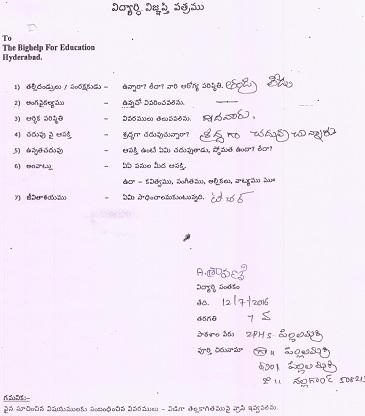 విద్యార్థి విజ్ఞప్తి పత్రము
To
The Bighelp For Education
Hyderabad.
1) తల్లిదండ్రులు / సంరక్షకుడు - ఉన్నారా? లేదా? వారి ఆరోగ్య పరిస్థితి. తండ్రి లేడు
2) అంగవైకల్యము - ఉన్నచో వివరించవలెను.
3) ఆర్థిక పరిస్థితి - వివరములు తెలుపవలెను. పేదవారు.
4) చదువు పై ఆసక్తి - శ్రద్ధగా చదువుచున్నారా? శ్రద్ధగా చదువుచున్నారు
5) ఉన్నతచదువు - ఆసక్తి ఉంటే ఏమి చదువుతాడు, స్తోమత ఉందా? లేదా?
6) అలవాట్లు - ఏఏ పనుల మీద ఆసక్తి.
ఉదా - కవిత్వము, సంగీతము, అల్లికలు, నాట్యము మొ॥
7) జీవితాశయము - ఏమి సాధించాలనుకుంటున్నది. టీచర్
A. శ్రావణి
విద్యార్థి సంతకం
తేది. 12/7/2016
తరగతి 7 వ
పాఠశాల పేరు ZPHS పిల్లలమర్రి
పూర్తి చిరునామా గ్రా॥ పిల్లలమర్రి
పిల్లలమర్రి
జి॥ నల్గొండ 508213
గమనిక:-
పైన సూచించిన విషయములకు సంబంధించిన వివరములు - విడిగా తెల్లకాగితముపై వ్రాసి ఇవ్వవలెను.